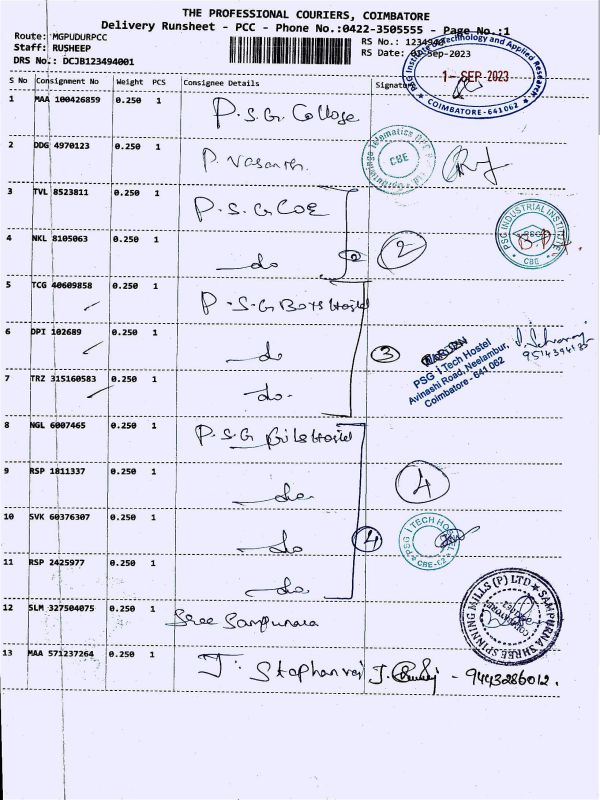 THE PROFESSIONAL COURIERS, COIMBATORE
Delivery Runsheet - PCC - Phone No.:0422-3505555 - Page No.:1
Route: MGPUDURPCC
RS No.:
Staff: RUSHEEP
RS Date: -Sep-2023
DRS No.: DCJB123494001
PSG Institute of Technology and Applied Research
1- SEP 2023
COIMBATORE-641 062
S No Consignment No Weight PCS Consignee Details Signature
1 MAA 100426859 0.250 1 P.S.G. College
2 DDG 4970123 0.250 1 P. Vasanth.
CBE
3 TVL 8523811 0.250 1 P.S.G COE
PSG INDUSTRIAL INSTITUTE
PSG
CBE
4 NKL 8105063 0.250 1 do
2 2
5 TCG 40609858 0.250 1 P.S.G Boys Hostel
6 DPI 102689 0.250 1 do
3
WARDEN
PSG iTech Hostel
Avinashi Road, Neelambur,
Coimbatore - 641 062
7 TRZ 315160583 0.250 1 do.
8 NGL 6007465 0.250 1 P.S.G Girls Hostel
9 RSP 1811337 0.250 1 do
4
10 SVK 60376307 0.250 1 do
4
PSG iTECH HOSTEL
CBE-62
11 RSP 2425977 0.250 1 do
12 SLM 327504075 0.250 1 Sree Sampurna
SAMPURNA SHREE SPINNING MILLS (P) LTD
COIMBATORE
13 MAA 571237264 0.250 1 J. Staphanraj J. - 9443286012.